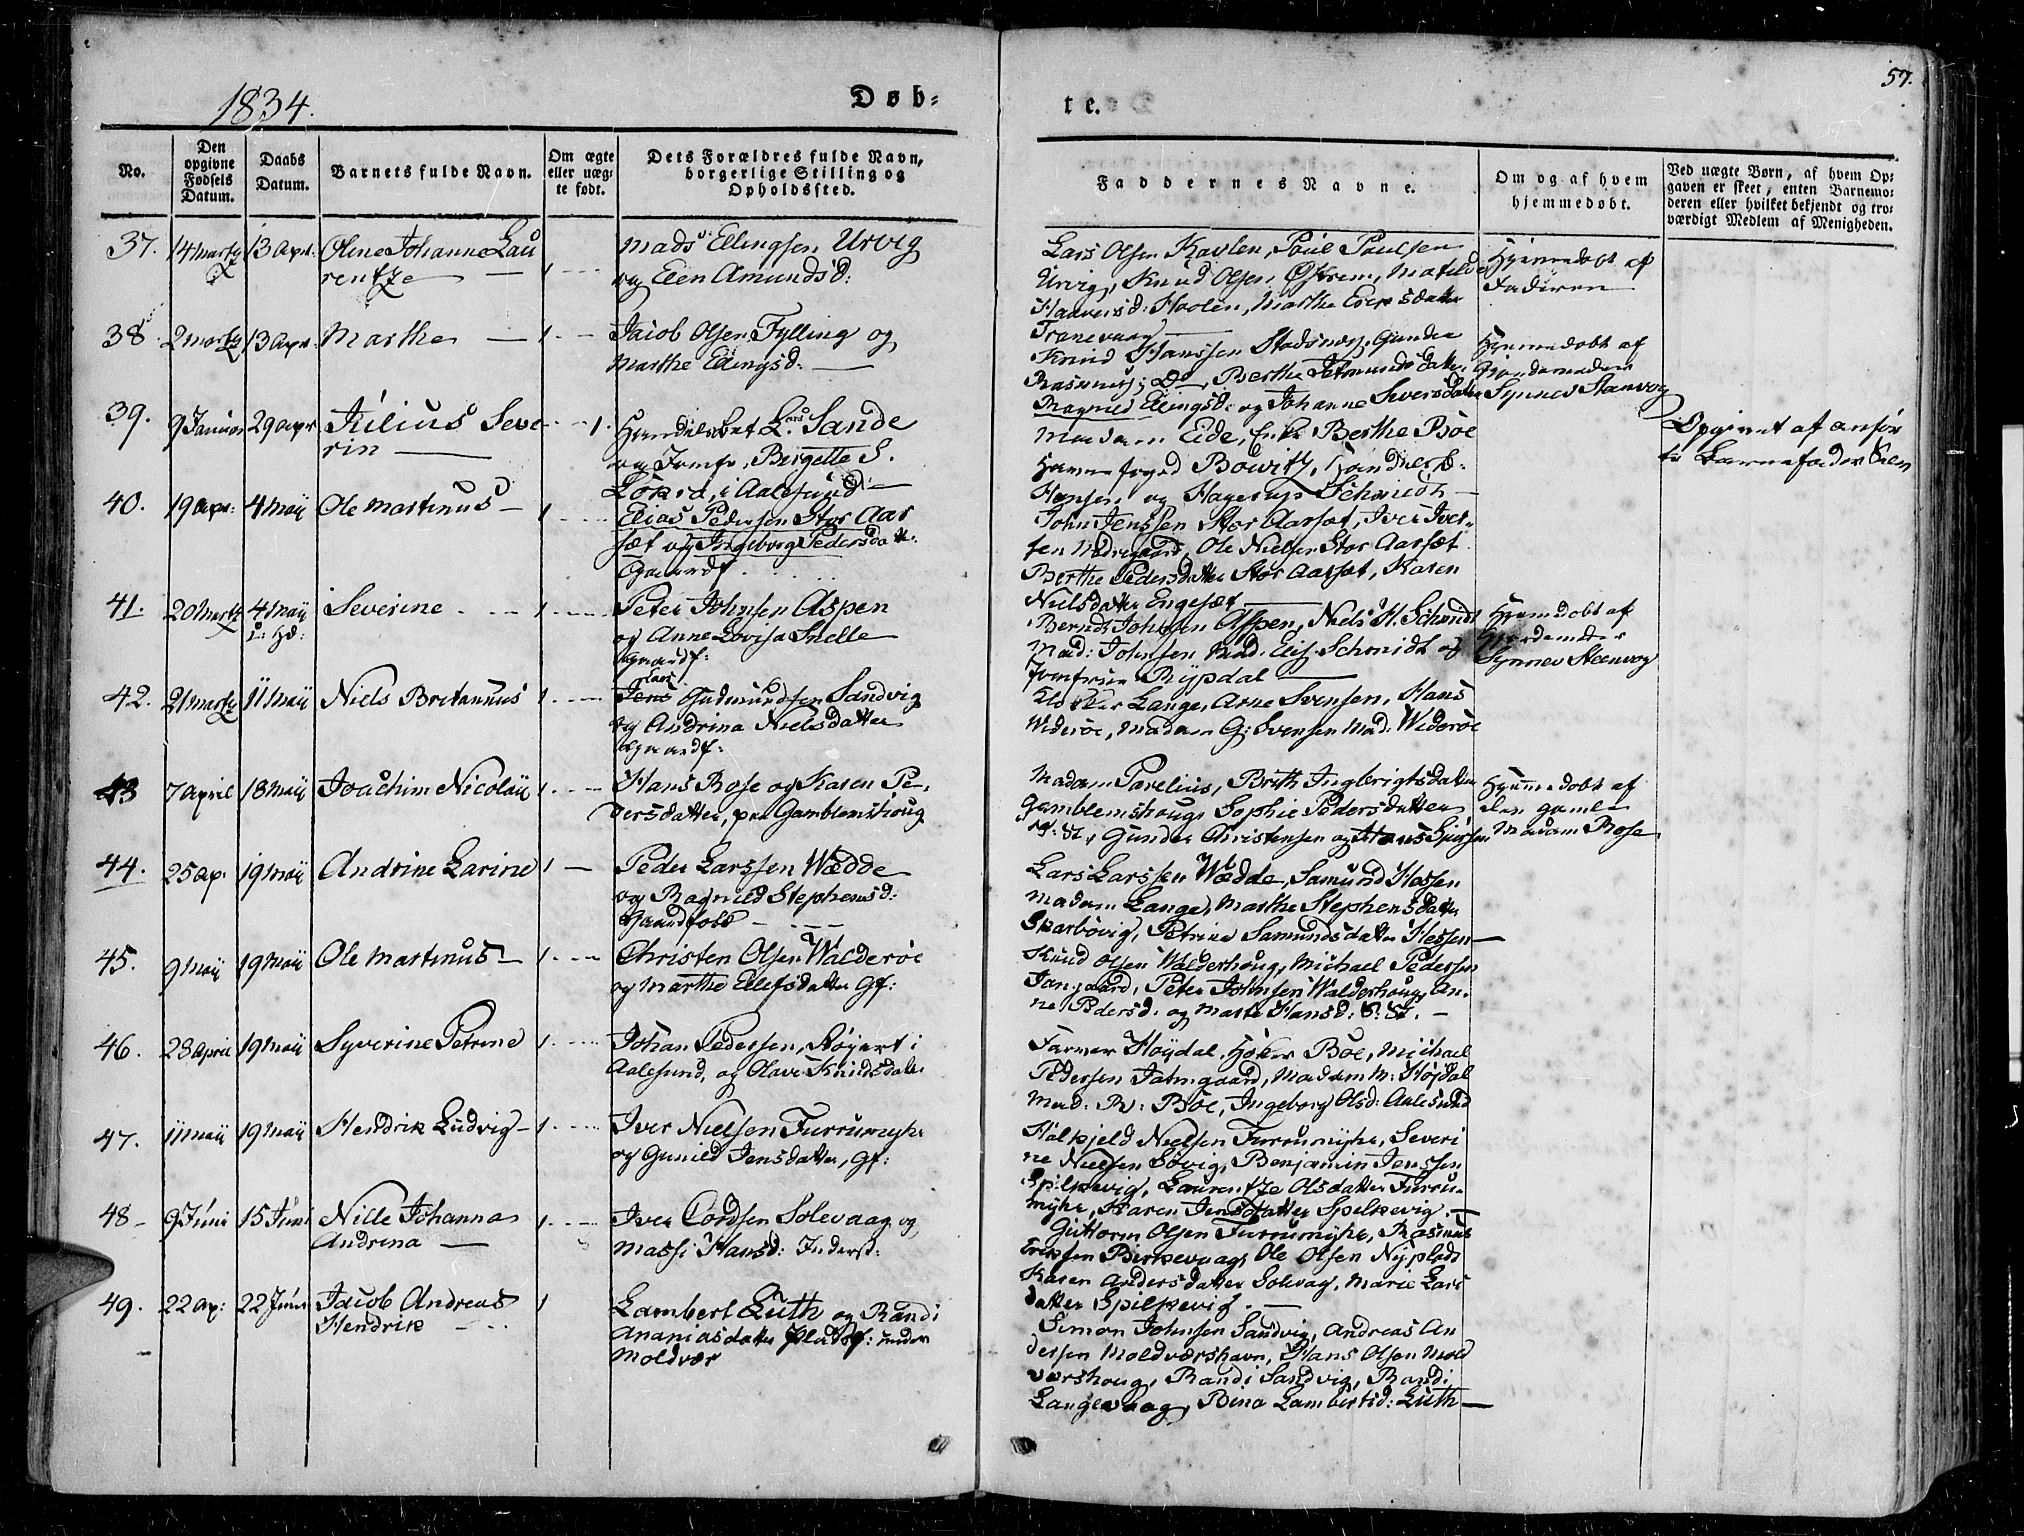 1834.
Døb-
te.
57.
No.
Den opgivne Fødsels Datum.
Daabs Datum.
Barnets fulde Navn.
Om ægte eller uæg-te født.
Dets Forældres fulde Navn, borgerlige Stilling og Opholdssted.
Faddernes Navne.
Om og af hvem hjemmedøbt.
Ved uægte Børn, af hvem Op-gaven er skeet, enten Barnemo-deren eller hvilket bekjendt og tro-værdigt Medlem af Menigheden.
37. 14 Martz 13 Apr. Oline Johanne Lau
rentze 1
Mads Ellingsen Urvig
og Elen Amundsd:
Lars Olsen Kavlen, Poul Poulsen
Urvig, Knud Olsen Østrem, Matilde
Haaversd: Hoolen, Marthe Eriksdatter
Tranevaag
Hjemmedobt af
Faderen
38. 2 Martz 13 Apr. Marthe 1
Jacob Olsen Fylling og
Marthe Ellingsd:
Knud Hanssen Stadsnes, Gunder
Rasmuss: Do, Berthe Jetmundsdatter
Ragnild Ellingsd: og Johanne Siversdatter
Hjemmedobt af
Gjordemoder
Synnev Stenvog
39. 9 Januar 29 Apr Julius Seve
rin 1.
Handelsbet Lars Sande
og Jomfr. Bergette S.
i Aalesund
Madam Eide, Enke Berthe Böe
Havnefoged Bowitz, Handverk:
Hansen og Hagerup Schmidt
Opgivet af anför
te Barnefader Selv
40. 19 Apr: 4 Maij Ole Martinus 1
Elias Pedersen Stor Aar
sæt og Ingeborg Pedersdatt:
Ggaardf.
John Jenssen Stor Aarsæt, Iver Iver-
sen Ole Nielsen Stor Aarsæt
Berthe Pedersdatter Stor Aarsæt, Karen
Nielsdatter Engesæt
41. 20 Martz 4 Maij Severine 1
Peter Johnsen Aspen
og Anne Lovisa Snelle
Ggaardf:
Bernt Johnsen Aspen, Niels H. Schmidt
Mad: Johnsen Mad. Elis. Schmidt og
Jomfrue Rypdal
Hjemmedobt af
Gjordemoder
Synnev Steenvog
42. 21 Martz 11 Maij Niels Britannus 1
Lars
Jens Gudmundsen Sandvig
og Andrina Nielsdatter
Ggaardf:
Klokker Lange, Arne Svensen, Hans
Wideröe, Madam G: Svensen Mad: Wideröe
43 7 April 18 Maij Joachim Nicolaij 1
Hans Rose og Karen Pe-
dersdatter, paa Gamblemshoug
Madam Pavelius, Brith Ingbrigtsdatter
Gamblemshoug, Sophie Pedersdatter
Gunder Christensen og
Hjemmedobt af
den gamle
Madam Rose
44. 25 Ap. 19 Maij Andrine Larine 1
Peder Larssen Wædde
og Ragnild Stephensd:
Gaardfolk
Lars Larssen Wædde, Samund Hessen
Madam Lange, Marthe Stephensdatter
Skarbövig, Petrine Samundsdatter Hessen
45. 9 Maij 19 Maij Ole Martinus 1
Christen Olsen Walderöe
og Marthe Ellefsdatter Gf:
Knud Olsen Walderhoug, Michael Pedersen
Jangaard, Peter Johnsen Walderhoug, An-
ne Pedersd. og Marte Hansd: S: St.
46. 28 April 19 Maij Syverine Petrine 1
Johan Pedersen, Röyert i
Aalesund, og Olave Knudsdatter
Farver Höydal, Höker Böe, Michael
Pedersen Jangaard, Madam M. Höjdal
Mad: R: Böe, Ingeborg Olsd: Aalesund
47. 11 Maij 19 Maij Hendrik Ludvig 1
Iver Nielsen Furrumyhr
og Gunild Jensdatter, Gf:
Halkjeld Nielsen Furrumyhr, Severi
ne Nielsen Sövig, Benjamin Jenssen
Spilkevig, Laurentze Olsdatter Furru-
myhr, Karen Jensdatter Spelkevig.
48 9 Juni 15 Juni Nille Johanna
Andrina 1
Iver Cordsen Solevaag og
Massi Hansd: Inderst:
Guttorm Olsen Furrumyhr, Rasmus
Eriksen Berkevaag, Ole Olsen Nyplads
Karen Andersdatter Solvag, Marie Lars
datter Spilkevig.
49. 22 Ap: 22 Juni Jacob Andreas
Hendrik 1
Lambert Lüth og Randi
Ananiasdatter Pladsf: under
Moldvær
Simon Johnsen Sandvig, Andreas An
dersen Moldværshavn, Hans Olsen Mold
værshoug, Randi Sandvig, Randi
Langevaag, Rina Lambertsd: Lüth